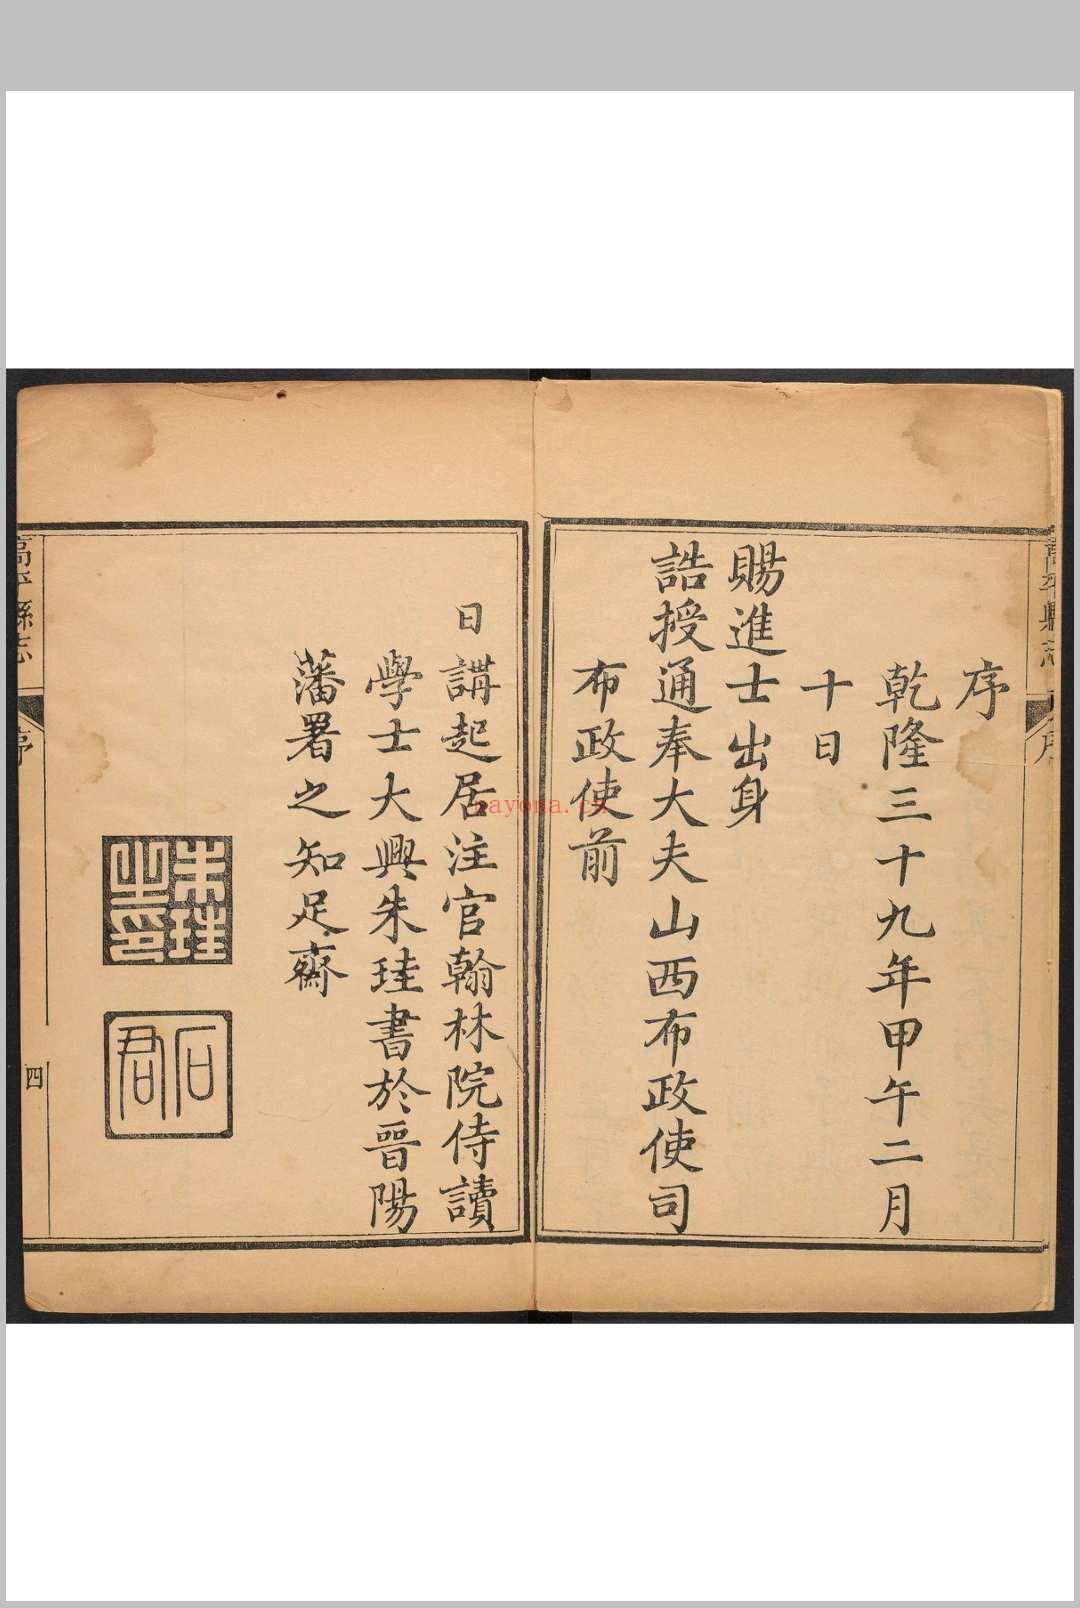 高平縣志
序
序
乾隆三十九年甲午二月
十日
賜進士出身
誥授通奉大夫山西布政使司
布政使前
日講起居注官翰林院侍讀
學士大興朱珪書於晉陽
藩署之知足齋
朱珪之印
石君
高平縣志
序
四
nayona.cn